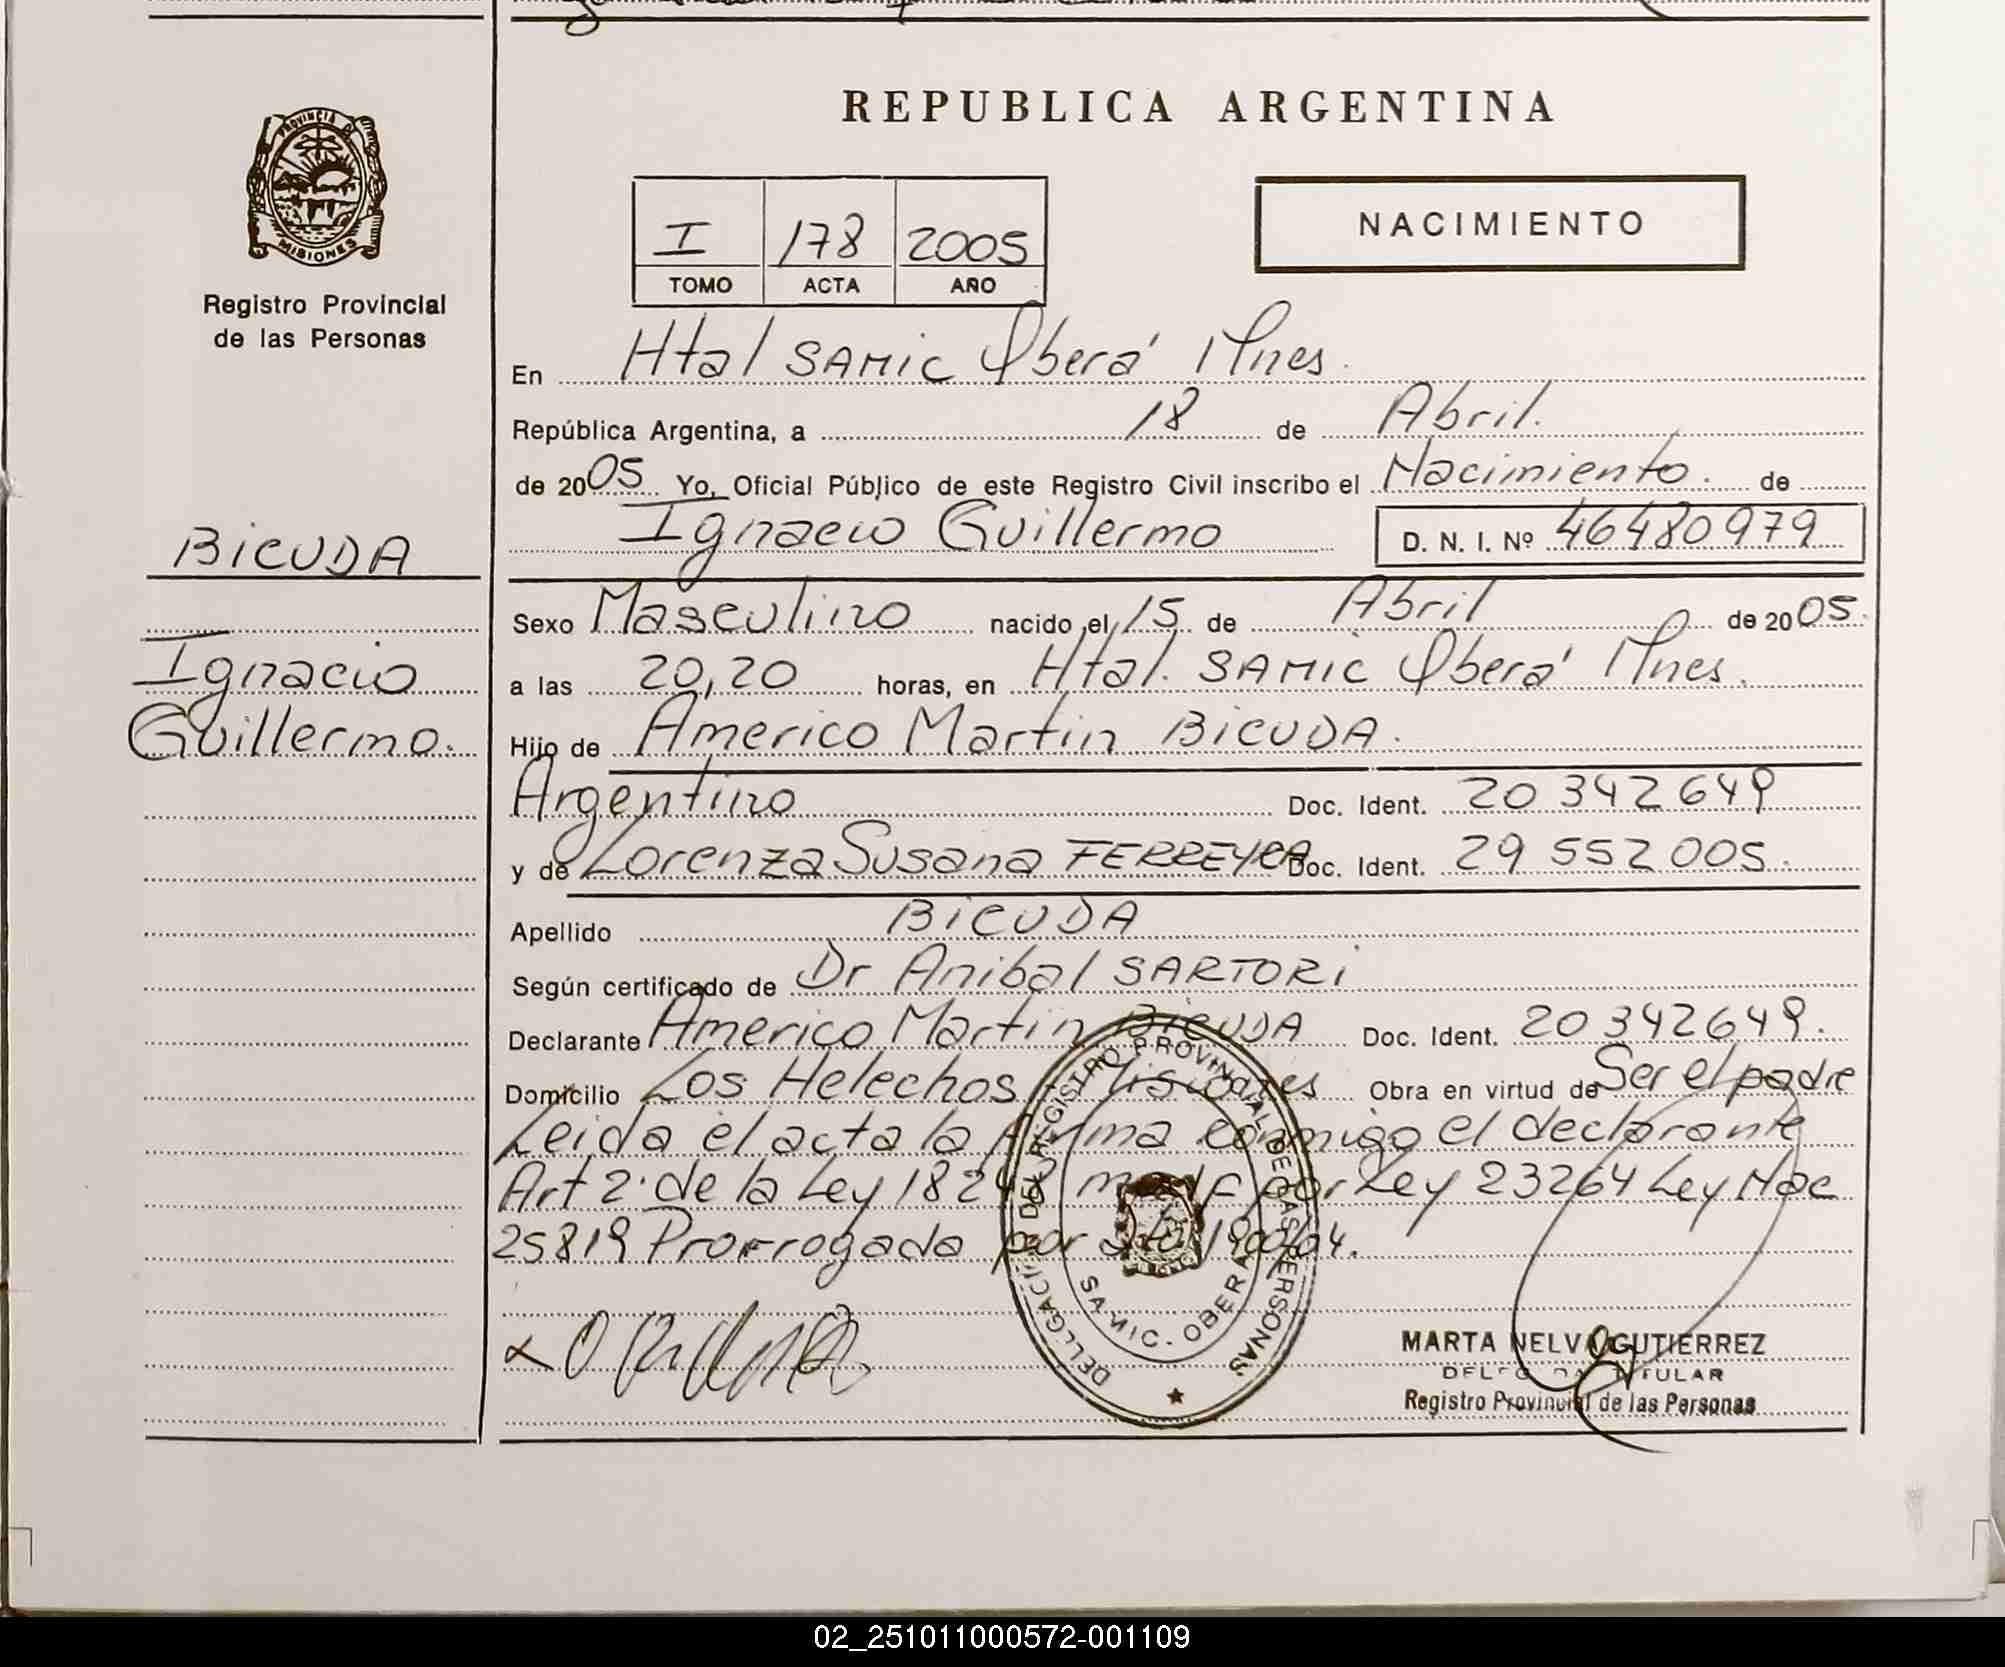 REPUBLICA ARGENTINA
PROVINCIA DE
MISIONES
Registro Provincial
de las Personas
I 178 2005
TOMO ACTA AÑO
NACIMIENTO
En Htal SAMIC Oberá Mnes.
República Argentina, a 18 de Abril.
de 2005 Yo, Oficial Público de este Registro Civil inscribo el Nacimiento. de
Ignacio Guillermo D. N. I. Nº 46480979
BICUDA
Ignacio
Guillermo.
Sexo Masculino nacido el 15 de Abril de 2005.
a las 20,20 horas, en Htal. SAMIC Oberá Mnes.
Hijo de Americo Martin BICUDA.
Argentino Doc. Ident. 20 342 649
y de Lorenza Susana FERREYRA Doc. Ident. 29 552 005.
Apellido BICUDA
Según certificado de Dr Anibal SARTORI
Declarante Americo Martin BICUDA Doc. Ident. 20 342649.
Domicilio Los Helechos Misiones Obra en virtud de Ser el padre
Leida el acta la firma conmigo el declarante
Art 2· de la Ley 18248 modf por Ley 23264 Ley Nac
25819 Prorrogada por 1900/04.
DELEGACION DEL REGISTRO PROVINCIAL DE LAS PERSONAS
SAMIC. OBERA
MARTA NELVA GUTIERREZ
DELEGADA TITULAR
Registro Provincial de las Personas
02_251011000572-001109